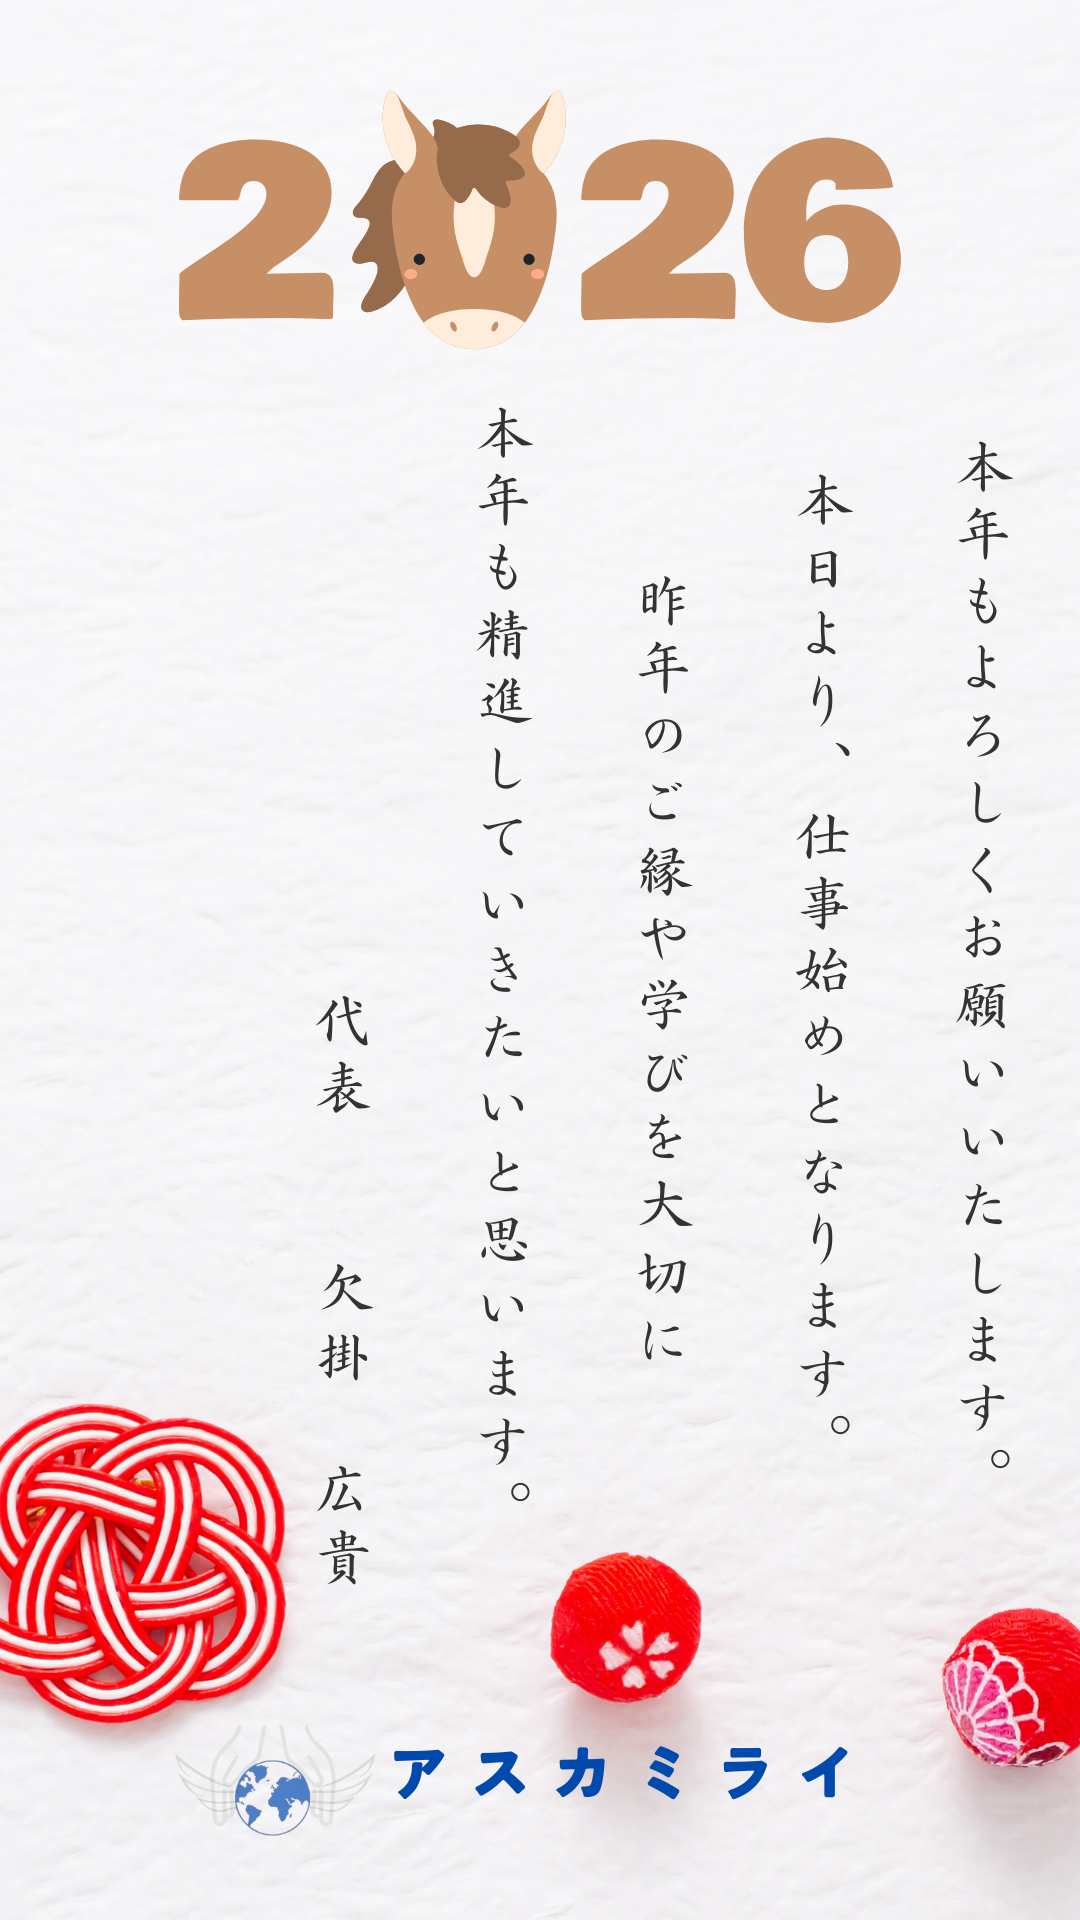 2026
本年もよろしくお願いいたします。
本日より、仕事始めとなります。
昨年のご縁や学びを大切に
本年も精進していきたいと思います。
代表　欠掛　広貴
アスカミライ